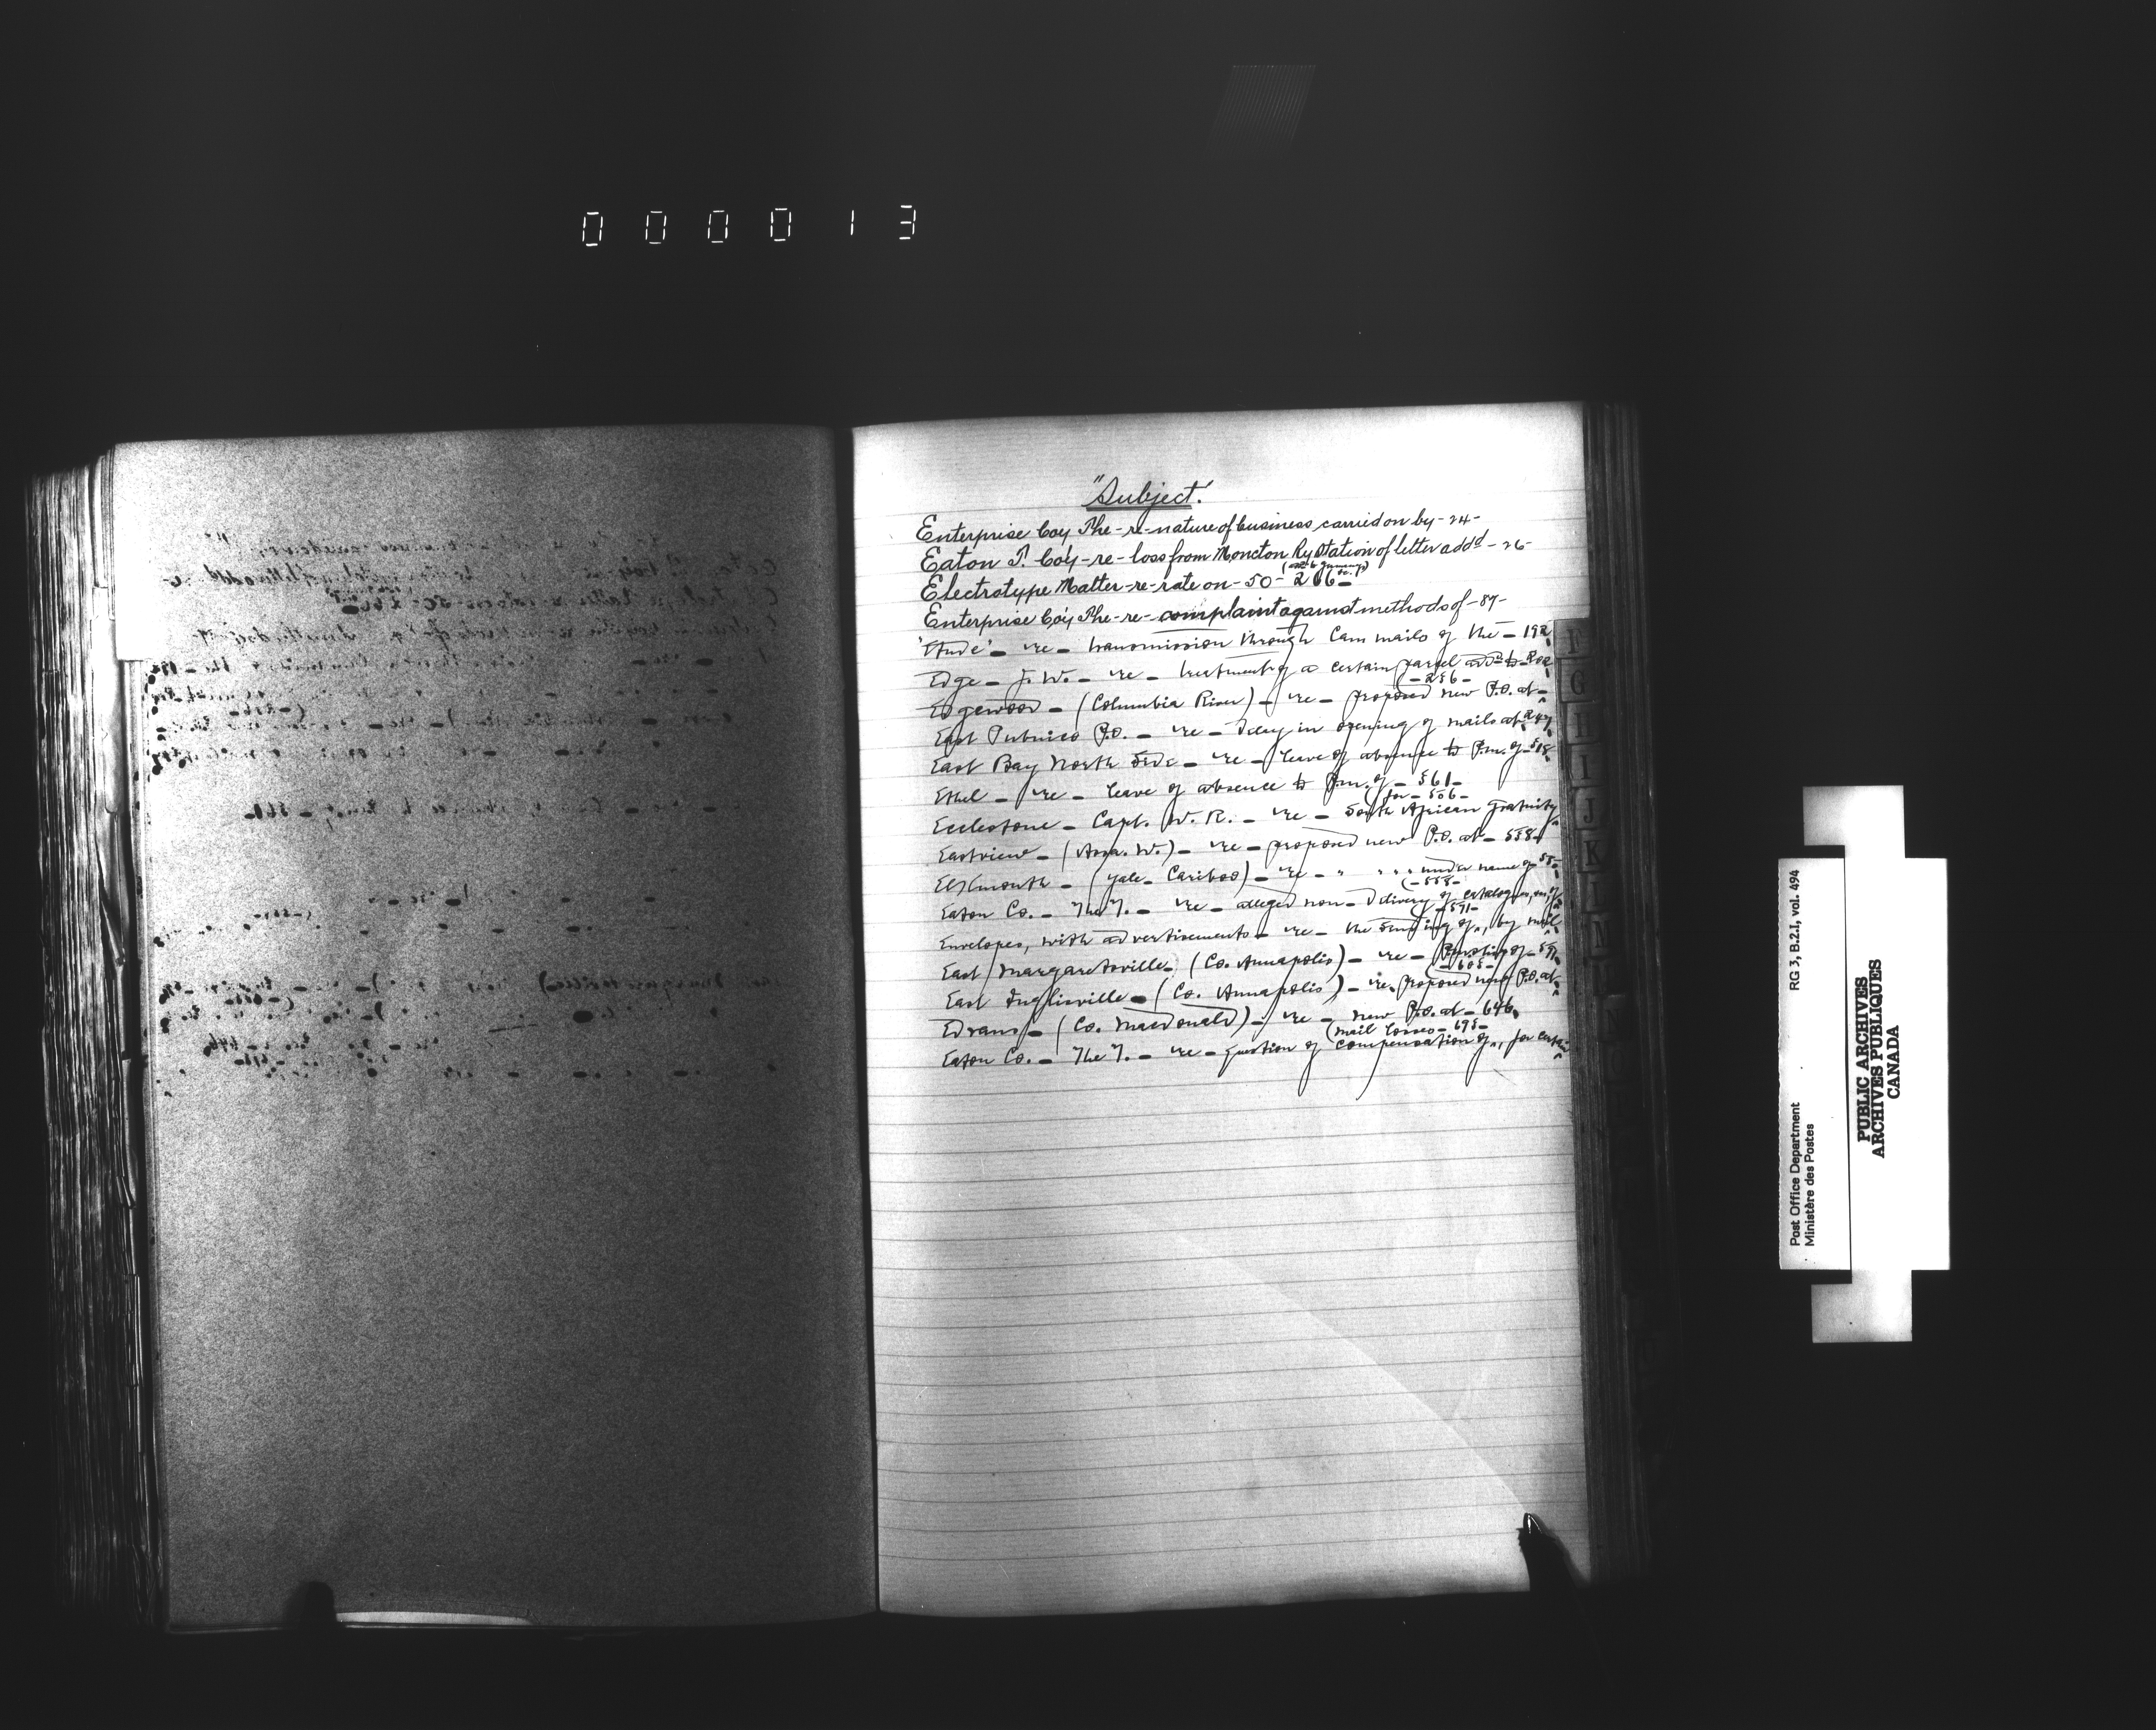 000013
"Subject"
Enterprise Coy The - re - nature of business carried on by - 24 -
Eaton T. Co'y - re - loss from Moncton Ry Station of letter addd - 26 -
Electrotype Matter - re - rate on - 50 - 266 -
Enterprise Co'y The - re - complaint against methods of - 87 -
'Etude' - re - transmission through Can mails of the - 192
Edge - J. W. - re - treatment of a certain parcel add to -
- 256 -
Edgewood - (Columbia River) - re - proposed new P.O. at -
East Pubnico P.O. - re - delay in opening of mails at 247
East Bay North Side - re - leave of absence to P.m. of - 518
Ethel - re - leave of absence to P.m. of - 561 -
for - 506 -
Ecclestone - Capt. W. R. - re - South African Gratuity
Eastview - (Assa. W.) - re - proposed new P.O. at - 558 -
Elkmouth - (Yale - Cariboo) - re - " " " under name of
(- 558 -
Eaton Co. - The T. - re - alleged non - delivery of catalogues
(- 571 -
Envelopes, with advertisements - re - the sending of, by mail
East Margaretsville - (Co. Annapolis) - re -
- 605 -
East Inglisville - (Co. Annapolis) - re. proposed new P.O. at
Edrans - (Co. Macdonald) - re - new P.O. at - 646
(mail losses - 695 -
Eaton Co. - The T. - re - question of compensation of, for certain
G
H
I
J
K
Post Office Department
Ministère des Postes
RG 3, B.2.I, vol. 494
PUBLIC ARCHIVES
ARCHIVES PUBLIQUES
CANADA